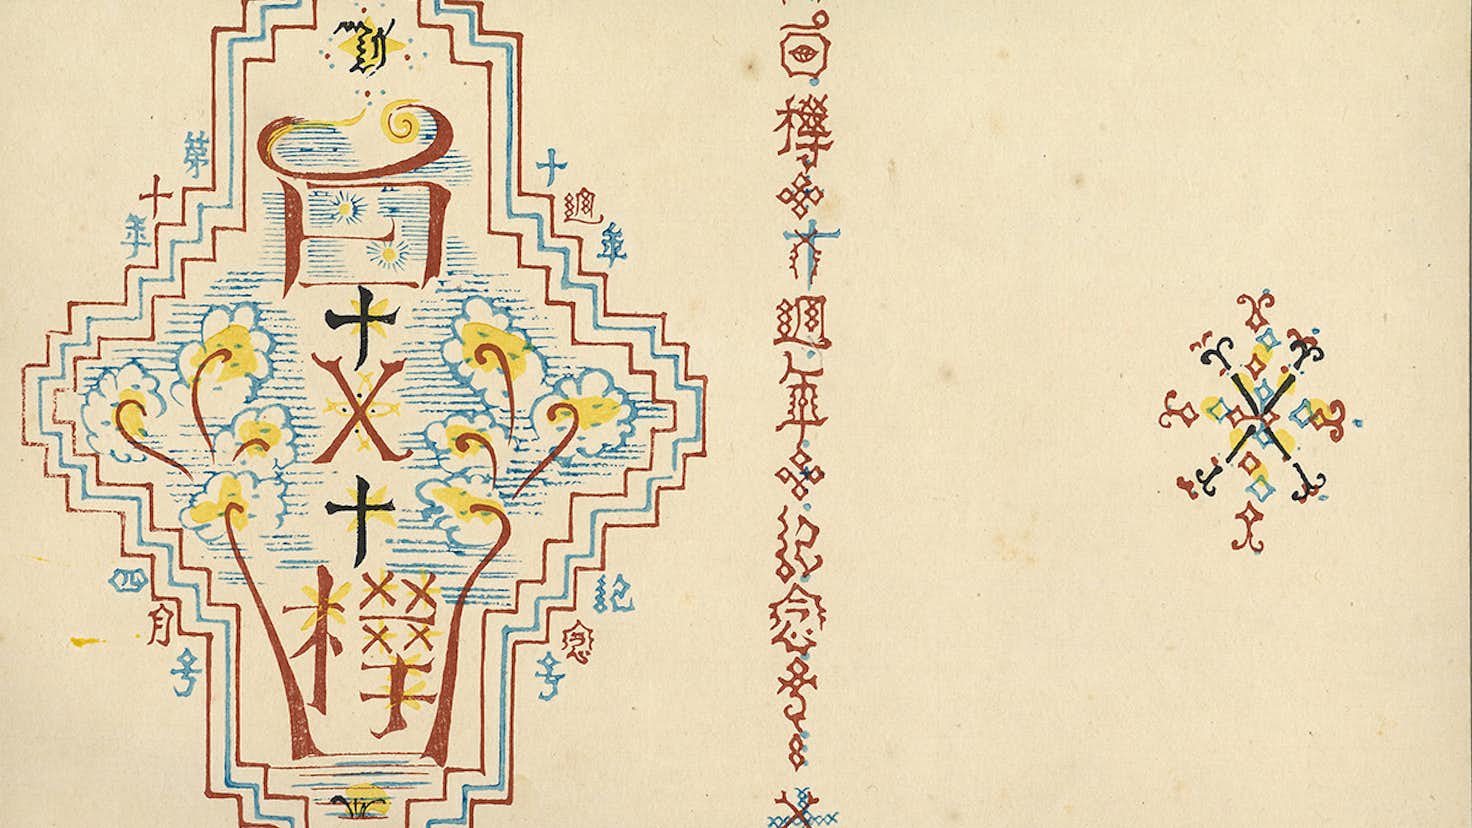 白
十
X
十
樺
第十年
四月号
十週年
記念号
白樺
十週年
記念号